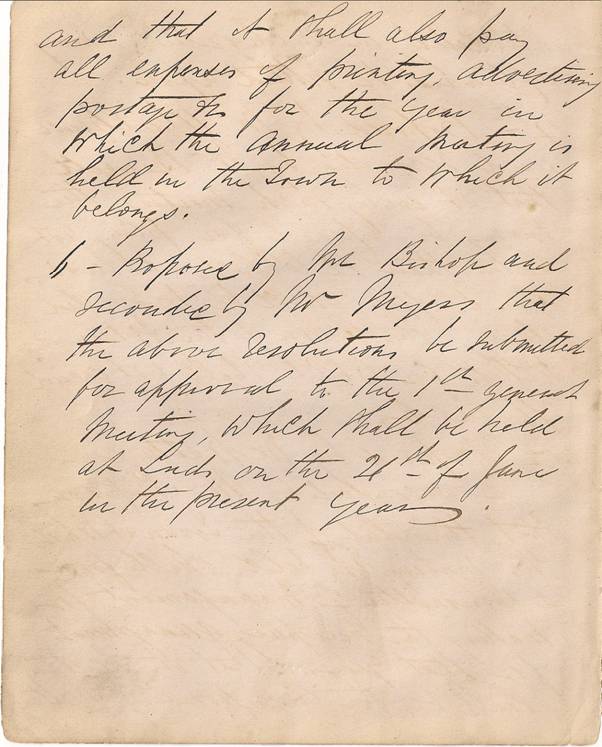 and that it shall also pay
all expenses of printing, advertising
postage &c for the year in
which the annual meeting is
held in the Town to which it
belongs.
6 - Proposed by Mr Bishop and
seconded by Mr Meyers that
the above resolutions be submitted
for approval to the 1st general
Meeting, which shall be held
at Leeds on the 21st of June
in the present year.